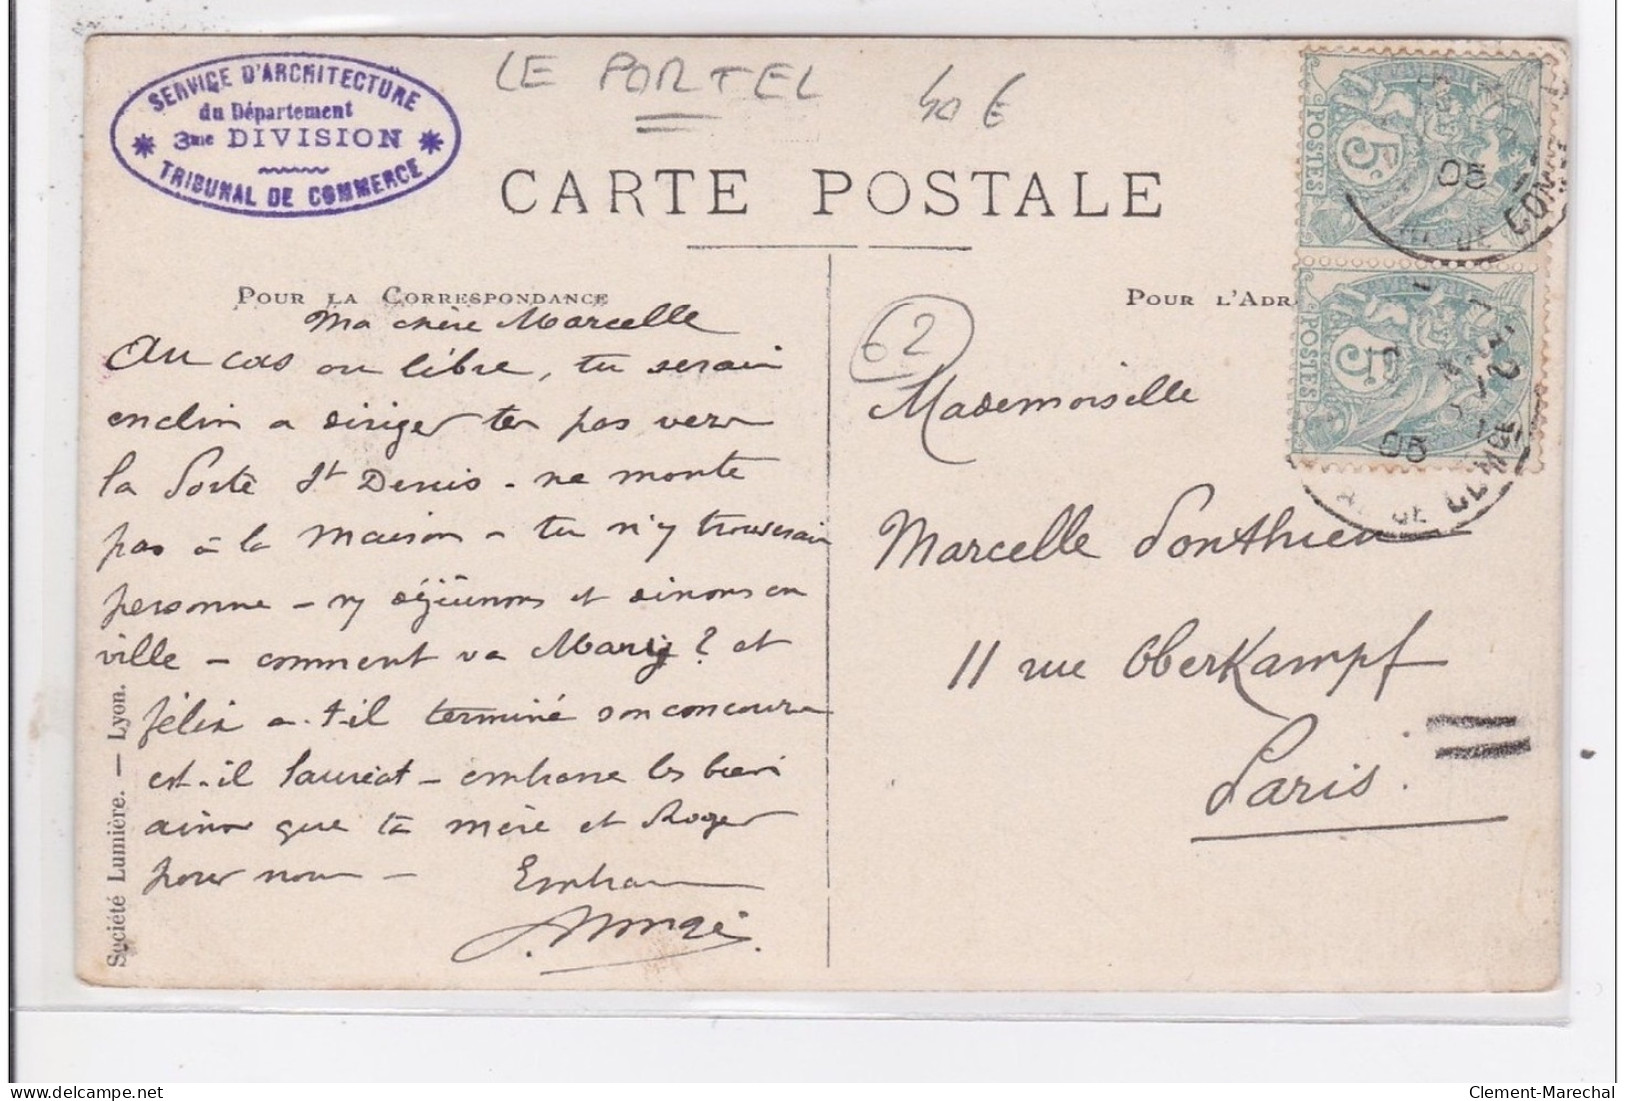 SERVICE D'ARCHITECTURE
du Département
3me DIVISION
TRIBUNAL DE COMMERCE
LE PORTEL 40 €
CARTE POSTALE
POUR LA CORRESPONDANCE
Ma chère Marcelle
Au cas ou libre, tu serais
enclin a diriger tes pas vers
la Porte St Denis - ne monte
pas à la maison - tu n'y trouverais
personne - ny déjeunons et dinons en
ville - comment va Mary ? et
félix a-t-il terminé son concours
est-il lauréat - embrasse les bien
ainsi que ta mère et Roger
pour nous -
Société Lumière. — Lyon.
POUR L'ADR
62
Mademoiselle
Marcelle Ponthieu
11 rue Oberkampf
Paris.
POSTES 5c
05
DE COMM
POSTES 5c
05
DE COMM
delcampe.net
Clement-Marechal